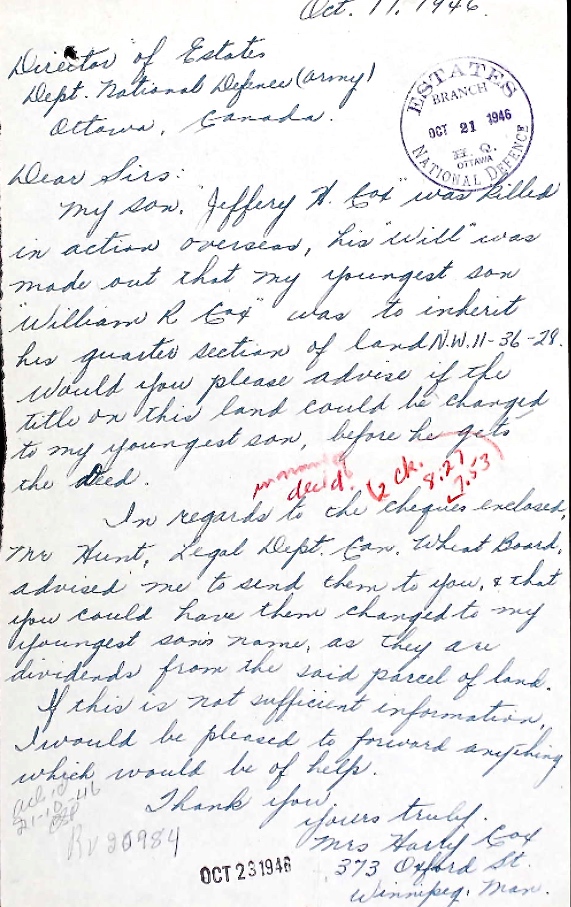 Oct. 17, 1946.
Director of Estates
Dept. National Defence (Army)
Ottawa, Canada.
ESTATES
BRANCH
OCT 21 1946
H. Q.
OTTAWA
NATIONAL DEFENCE
Dear Sirs:
My son. "Jeffery H. Cox" was killed
in action overseas, his "Will" was
made out that my youngest son
"William R Cox" was to inherit
his quarter section of land N.W. 11-36-28.
Would you please advise if the
title on this land could be changed
to my youngest son, before he gets
the deed.
dec'd. (2 ck. 8.27
7.53
In regards to the cheques enclosed,
Mr Hunt, Legal Dept. Can. Wheat Board,
advised me to send them to you, & that
you could have them changed to my
youngest son's name, as they are
dividends from the said parcel of land.
If this is not sufficient information,
I would be pleased to forward anything
which would be of help.
Thank you,
Yours truly.
Mrs Harry Cox
373 Oxford St.
Winnipeg. Man.
21-10-46
Rv 20984
OCT 23 1946